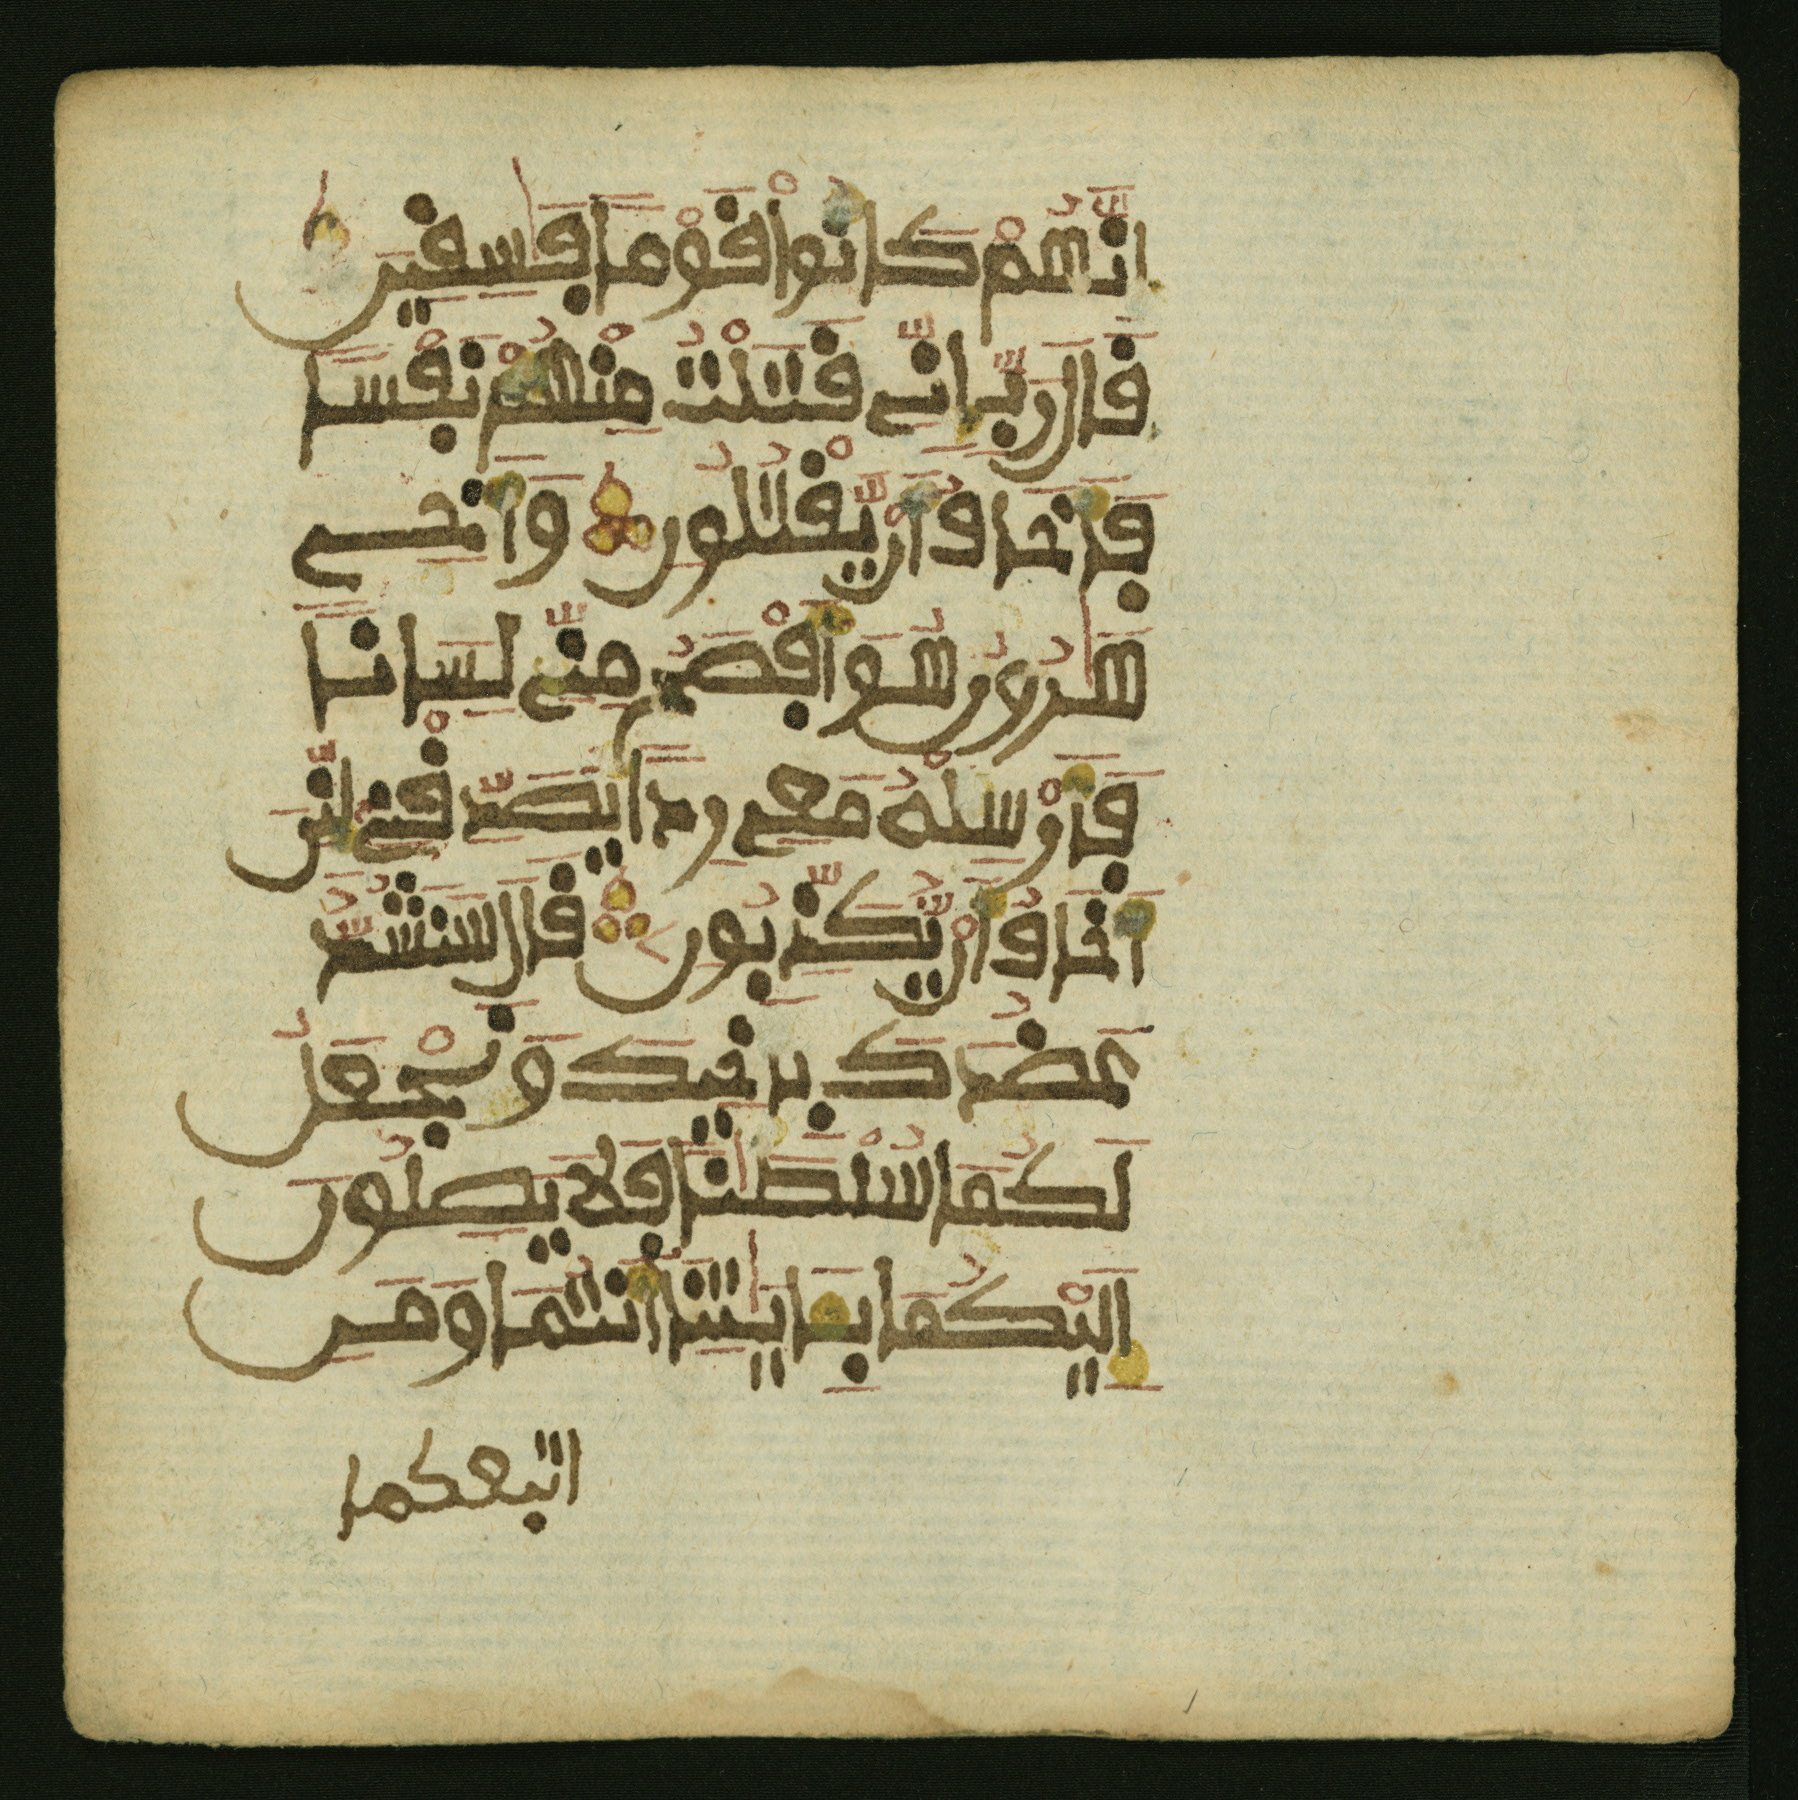 إِنَّهُمْ كَانُوا۟ قَوْمًا فَٰسِقِينَ
قَالَ رَبِّ إِنِّي قَتَلْتُ مِنْهُمْ نَفْسًا
فَأَخَافُ أَنْ يَّقْتُلُونِ وَأَخِي
هَٰرُونُ هُوَ أَفْصَحُ مِنِّي لِسَانًا
فَأَرْسِلْهُ مَعِي رِدًا يُصَدِّقْنِي إِنِّيَ
أَخَافُ أَنْ يُّكَذِّبُونِ قَالَ سَنَشُدُّ
عَضُدَكَ بِأَخِيكَ وَنَجْعَلُ
لَكُمَا سُلْطَٰنًا فَلَا يَصِلُونَ
إِلَيْكُمَا بِـَٔايَٰتِنَا أَنْتُمَا وَمَنِ
اتبعكما